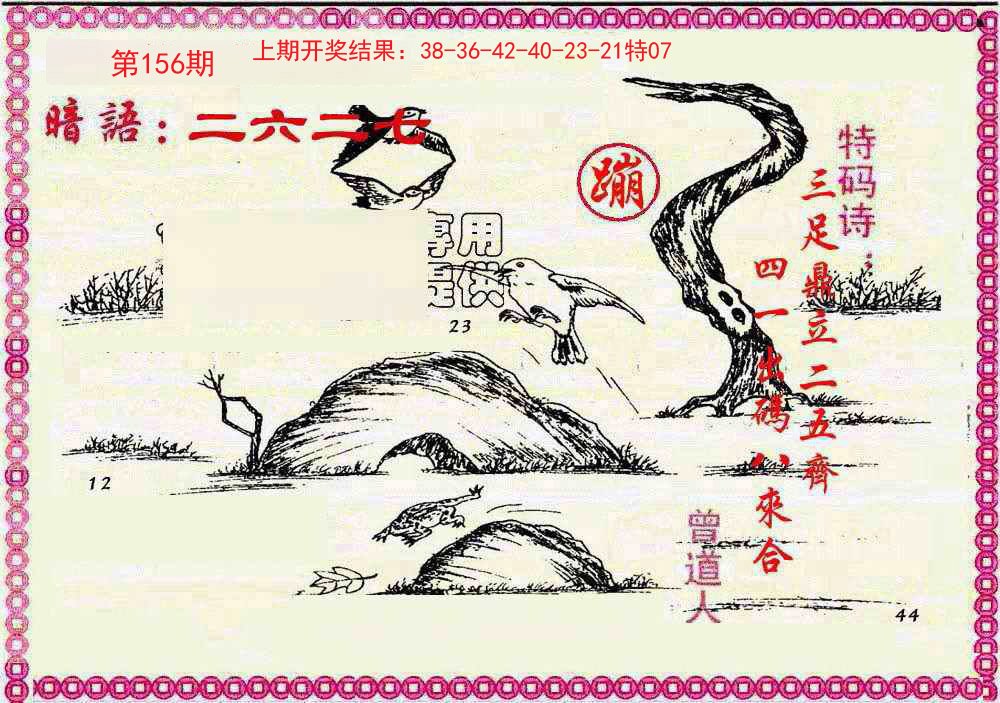 第156期
上期开奖结果：38-36-42-40-23-21特07
暗語：二六二七
蹦
特码诗：
三足鼎立二五齊
四一出碼八來合
享用
是供
23
12
曾道人
44